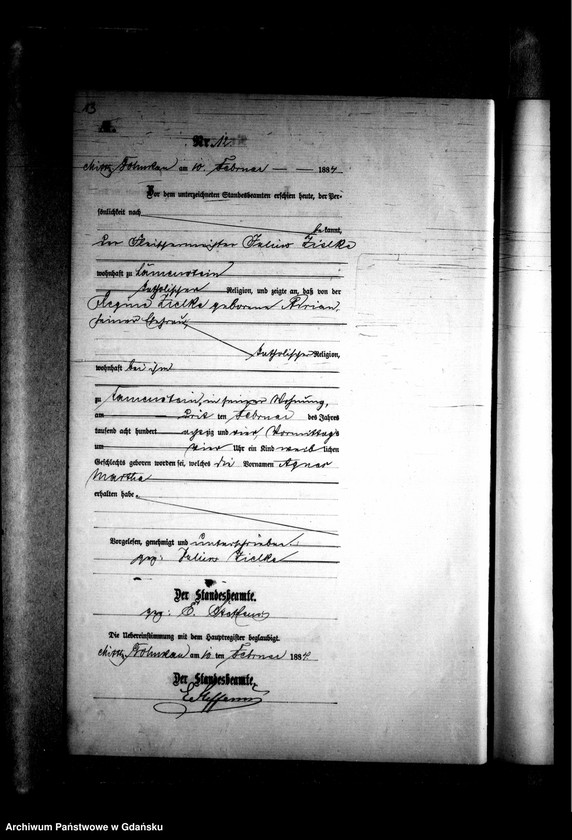 13
A.
Nr. 12
am 10. Februar 1884
Vor dem unterzeichneten Standesbeamten erschien heute, der Per-
sönlichkeit nach
be kannt,
der Julius Zielke
wohnhaft zu Löwenstein
katholischer Religion, und zeigte an, daß von der
Regina Zielke geborene Adrian,
seiner Ehefrau,
katholischer Religion,
wohnhaft bei ihm
zu Löwenstein, in seiner Wohnung,
am drit ten Februar des Jahres
tausend acht hundert achtzig und vier, Vormittags
um vier Uhr ein Kind weib lichen
Geschlechts geboren worden sei, welches die Vornamen Agnes
Martha
erhalten habe.
Vorgelesen, genehmigt und unterschrieben
gez: Julius Zielke
Der Standesbeamte.
gez: E. Steffens
Die Uebereinstimmung mit dem Hauptregister beglaubigt.
am 10 ten Februar 1884.
Der Standesbeamte.
E. Steffens
Archiwum Państwowe w Gdańsku